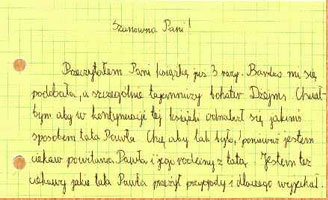 Szanowna Pani!
Przeczytałem Pani książkę już 3 razy. Bardzo mi się
podobała, a szczególnie tajemniczy bohater Dżejms. Chciał-
bym aby w kontynuacji tej książki odnalazł się jakimś
sposobem tata Pawła. Chcę aby tak było, ponieważ jestem
ciekaw powitania Pawła i jego rodziny z tatą. Jestem też
ciekawy jakie tata Pawła przeżył przygody i dlaczego wyjechał.